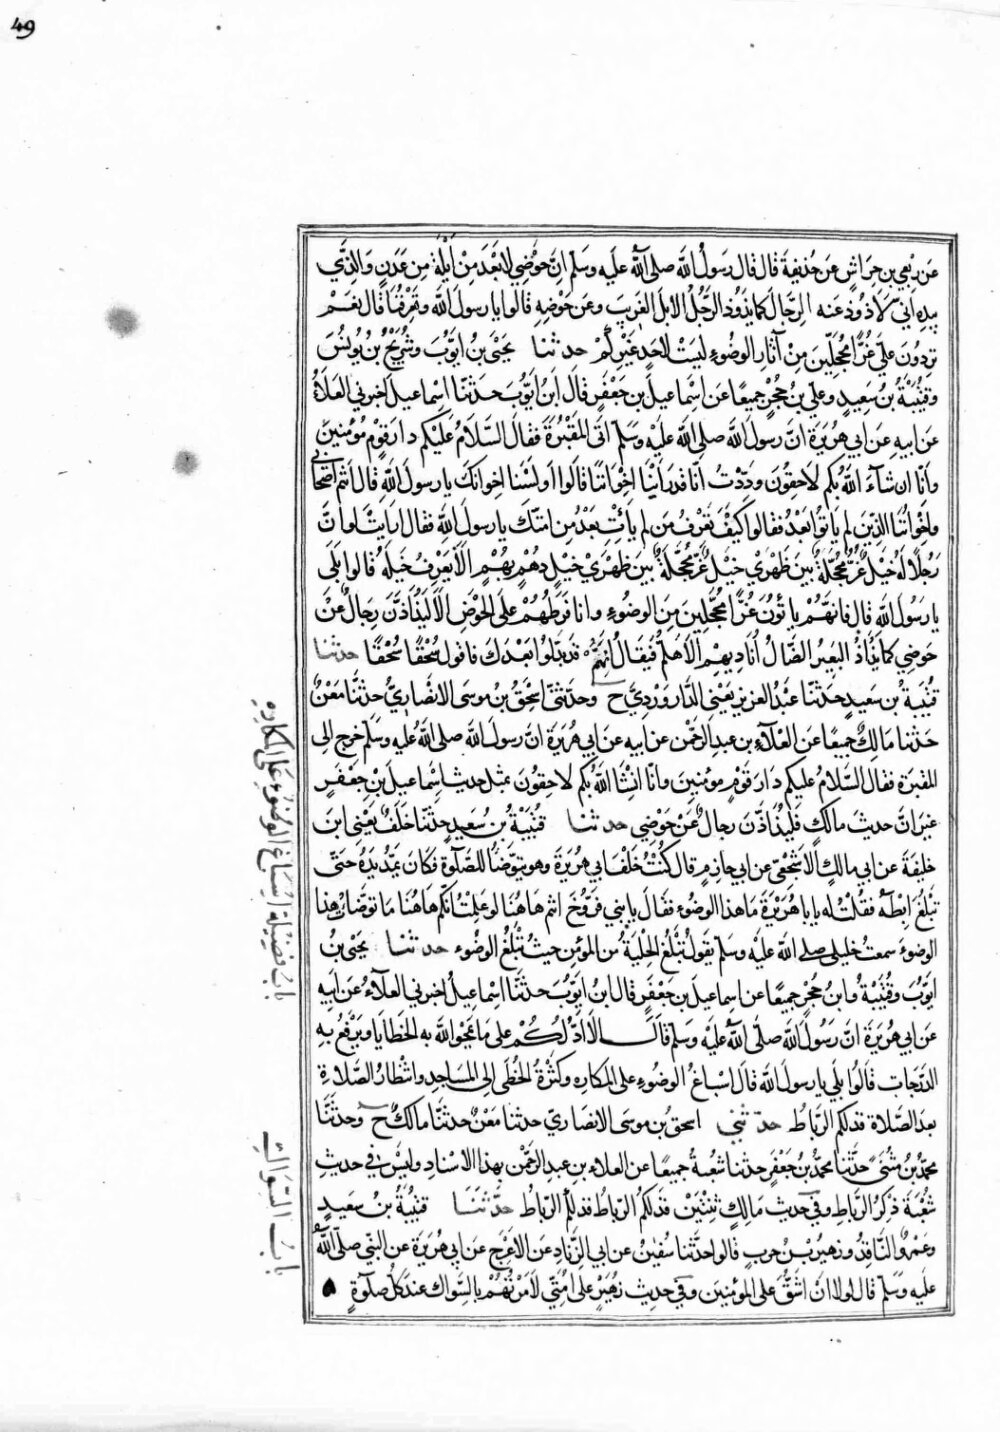 49
عَن رِبعي بن حِرَاشٍ عَن حُذيفةَ قال قال رَسولُ اللَّه صلى اللَّه عليه وسَلم اِنَّ حَوْضِي لابْعَدَ مِنْ اَيْلَةَ مِن عَدَنٍ وَالَّذِي
بيدِهِ اني لَاَذُودُ عنه الرِّجالَ كما يَذُودُ الرَّجُلُ الابلَ الغريبَةَ عن حَوْضِهِ قالوا يا رسولَ اللَّه وتَعْرِفُنَا قال نعَمْ
تردونَ عليَّ غُرًّا مُحَجَّلِينَ مِنْ آثارِ الوضُوءِ ليسَتْ لاحَدٍ غَيْرِكُمْ حدثنا يحيَى بنُ ايّوُبَ وسُرَيْجُ بنُ يُونُسَ
وقُتَيْبَةُ بنُ سَعِيدٍ وعليُّ بنُ حُجْرٍ جميعًا عَن اِسْماعيلَ بنِ جَعْفَرٍ قالَ ابنُ ايّوُبَ حَدثنا اسْماعيلُ اخبرني العَلَاءُ
عَن ابيهِ عَن ابي هُرَيرَةَ انَّ رسولَ اللَّه صلى اللَّه عَليْهِ وسَلم اَتَى المَقْبُرَةَ فقالَ السَّلَامُ عَليْكُم دارَ قوْمٍ مُؤمِنينَ
وَاِنَّا ان شآءَ اللَّهُ بكم لاَحِقُونَ وَدِدْتُ اَنَّا قد رَاَيْنَا اِخْوَانَنَا قالوُا اَوَلَسْنَا اِخوانَكَ يا رسول اللَّهِ قال انتم اَصْحَابي
واِخْوَانُنَا الَّذِينَ لم يَاتوا بَعْدُ فقالوا كَيْفَ تَعْرِفُ مَن لم يَأتِ بَعْدُ مِن امّتكَ يا رسولَ اللَّهِ فقالَ ارَايْتَ لوانَّ
رَجُلًا لَهُ خَيْلٌ غُرٌّ مُحَجَّلَةٌ بينَ ظَهْرَيْ خَيْلٍ غُرٌّ مُحَجَّلَةٌ بَيْنَ ظَهْرَيْ خيْلٍ دُهْمٍ بُهْمٍ الَا يَعْرِفُ خَيْلَهُ قالوا بَلَى
يا رسُولَ اللَّهِ قال فانهُمْ يا تُونَ غُرًّا مُحَجَّلِينَ مِنَ الوضوءِ وانا فَرَطُهُمْ عَلَى الحَوْضِ الَا لَيُذَادَنَّ رِجالٌ عَنْ
حَوْضِي كما يُذَادُ البَعيرُ الضَّالُّ اُنَادِيهِم اَلَا هَلُمَّ فيُقَالُ اِنَّهُمْ قد بَدَّلُوا بَعْدَكَ فاقول سُحْقًا سُحْقًا حدثنا
قُتَيْبَةُ بن سَعيدٍ حَدَّثنَا عَبْدُ العزيزِ يَعْني الدَّارَوَرْدِيَّ ح وحَدَّثني اسْحٰقُ بنُ موسَى الانْصَاريُّ حدثنا مَعْنٌ
حَدَّثنا مَالِكٌ جَميعًا عَنِ العَلَاءِ بنِ عَبدِ الرحْمٰنِ عَن ابيه عَن ابي هُرَيرَةَ انَّ رسولَ اللَّه صلى اللَّهُ عليه وسَلم خرج الى
المقبرَة فقال السَّلامُ عليكم دَارَ قَوْمٍ مؤمنينَ وانّا انشَا اللَّهُ بكم لاحِقُونَ بمثل حديث اِسْماعيلَ بْنِ جَعْفَرٍ
غيرَ انَّ حديثَ مالكٍ فَلَيُذَاذَنَّ رجالٌ عَنْ حَوْضِي حدثنا قُتَيْبَةُ بنُ سَعِيدٍ حَدَّثنا خَلَفٌ يَعْني ابنَ
خليفَةَ عن ابي مالكٍ الاشجَعِيِّ عن ابي حازِمٍ قال كُنْتُ خَلْفَ ابي هُرَيرَةَ وهو يتوَضّأُ للصَّلَوةِ فكانَ يَمُدُّ يدَهُ حَتَّى
تَبْلُغَ اِبْطَهُ فقلتُ له يابا هُرَيْرَةَ ما هذا الوضوء فقَالَ يا بني فَرُّوخَ انتم هَاهُنَا لوعَلِمْتُ انّكم هَاهُنَا ما توَضّاتُ هذا
الوضوءَ سمعتُ خليلي صلى اللَّه عَليْه وسَلم يقولُ تَبْلُغُ الحِلْيَةُ مِنَ المؤمِنِ حيثُ تَبْلُغُ الوضُوء حدثنا يحيَى بنُ
ايّوُبَ وقُتَيْبَةُ وابنُ حُجْرٍ جميعًا عن اسماعيلَ بنِ جَعْفَرٍ قال ابنُ ايّوبَ حَدثنا اسْماعيلُ اخبرني العَلَآءُ عَن ابيه
عَن ابي هُرَيرَةَ انَّ رَسُولَ اللَّه صلَّى اللَّهُ عَليْه وسَلم قَالَ الَا اَدُلُّكُمْ على مَا يَمْحُوا اللَّه به الخَطَايا ويَرْفَعُ بهِ
الدَّرَجَاتِ قالوُا بلي يا رسولَ اللَّه قالَ اسْباغُ الوضُوءِ على المكارِه وكَثْرَةُ الخُطَى الى المسَاجِدِ وانتظارُ الصَّلاةِ
بعد الصَّلاة فذلكم الرِّبَاطُ حدّثني اسحقُ بن موسَى الانصَاري حدثنا مَعْنٌ حدثنا مالكٌ ح وحَدثنَا
محمّدُ بنُ مُثَنَّى حَدَّثنا محمّدُ بنُ جَعْفَرٍ حدثنا شُعْبةُ جميعًا عن العلاءِ بنِ عبدِ الرحْمٰنِ بهذا الاسْنادِ وليسَ في حديثِ
شُعْبَةَ ذِكرُ الرِّبَاطِ وفي حَديث مَالِكٍ ثِنْتَيْنِ فذلكُم الرّبَاطُ فذلكُم الرِّبَاطُ حدّثنَا قتيْبَةُ بنُ سَعِيدٍ
وعَمْرٌو النَّاقِدُ وزهيرُ بْنُ حربٍ قالوا حَدَّثنا سُفْيٰنُ عن ابي الزِّنادِ عَن الاعْرَجِ عَن ابي هُرَيرَةَ عن النبّي صلى اللَّهُ
عليه وسَلم قالَ لولا ان اشُقَّ على المؤمنينَ وفي حديث زهَيْرٍ على اُمَّتِي لامَرْتُهُمْ بالسِّواك عندَ كلّ صلَوةٍ ه
بابُ فضيلة اسباغ الوضوءِ على المكارِهِ
بابُ السِّوَاكِ